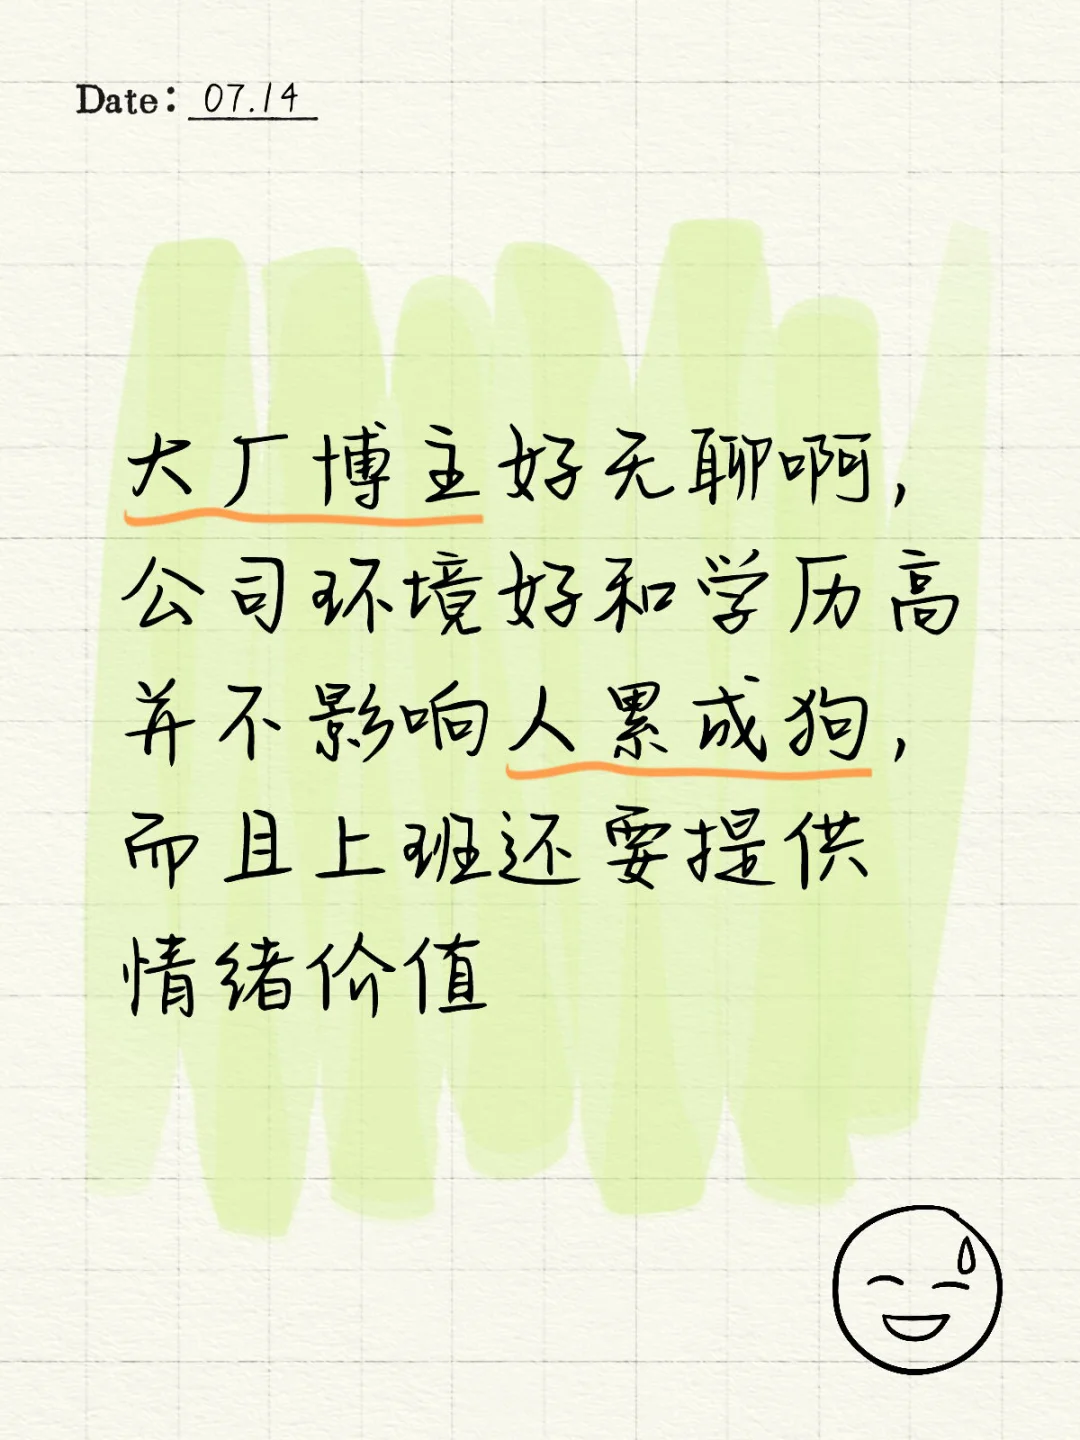 Date: 07.14
大厂博主好无聊啊,
公司环境好和学历高
并不影响人累成狗,
而且上班还要提供
情绪价值